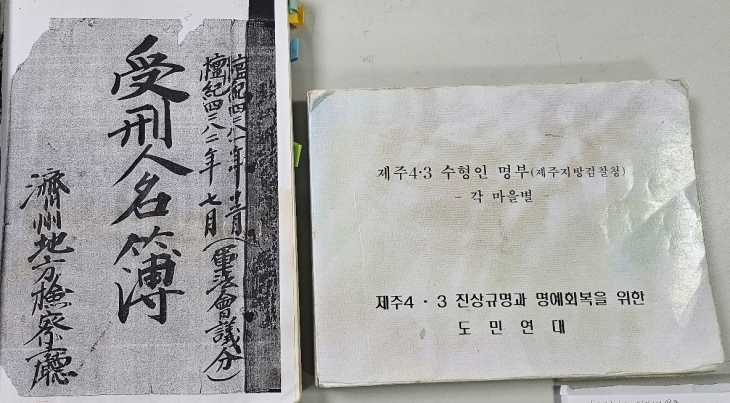 檀紀四二八一年十二月
檀紀四二八二年 七月 (軍法會議分)
受刑人名簿
濟州地方檢察廳
제주4·3 수형인 명부(제주지방검찰청)
- 각 마을별 -
제주4 · 3 진상규명과 명예회복을 위한
도 민 연 대